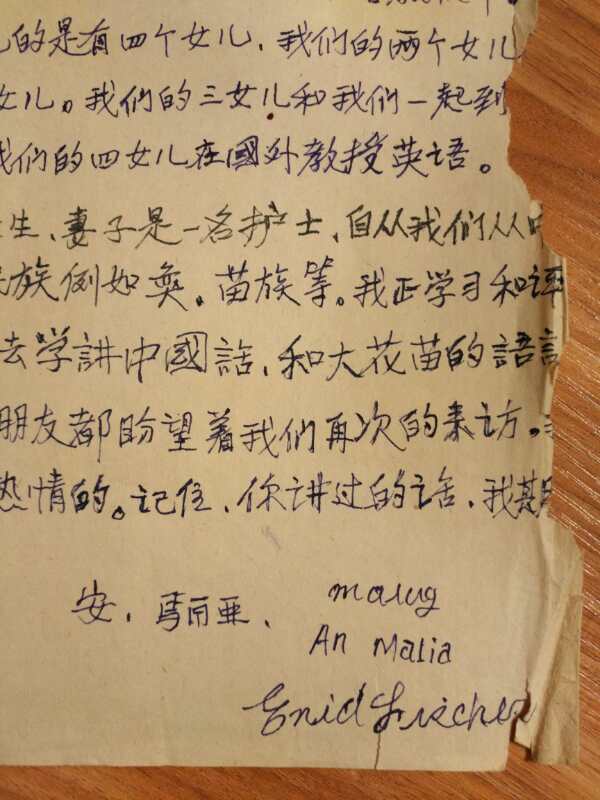 的是有四个女儿，我们的两个女儿
女儿。我们的三女儿和我们一起到
我们的四女儿在國外教授英语。
生，妻子是一名护士，自从我们从
族例如彝，苗族等。我正学习和评
去学講中國話，和大花苗的語言
朋友都盼望着我们再次的来访。
热情的。记住，你讲过的话，我
安，馬丽亚，
An Malia
Enid